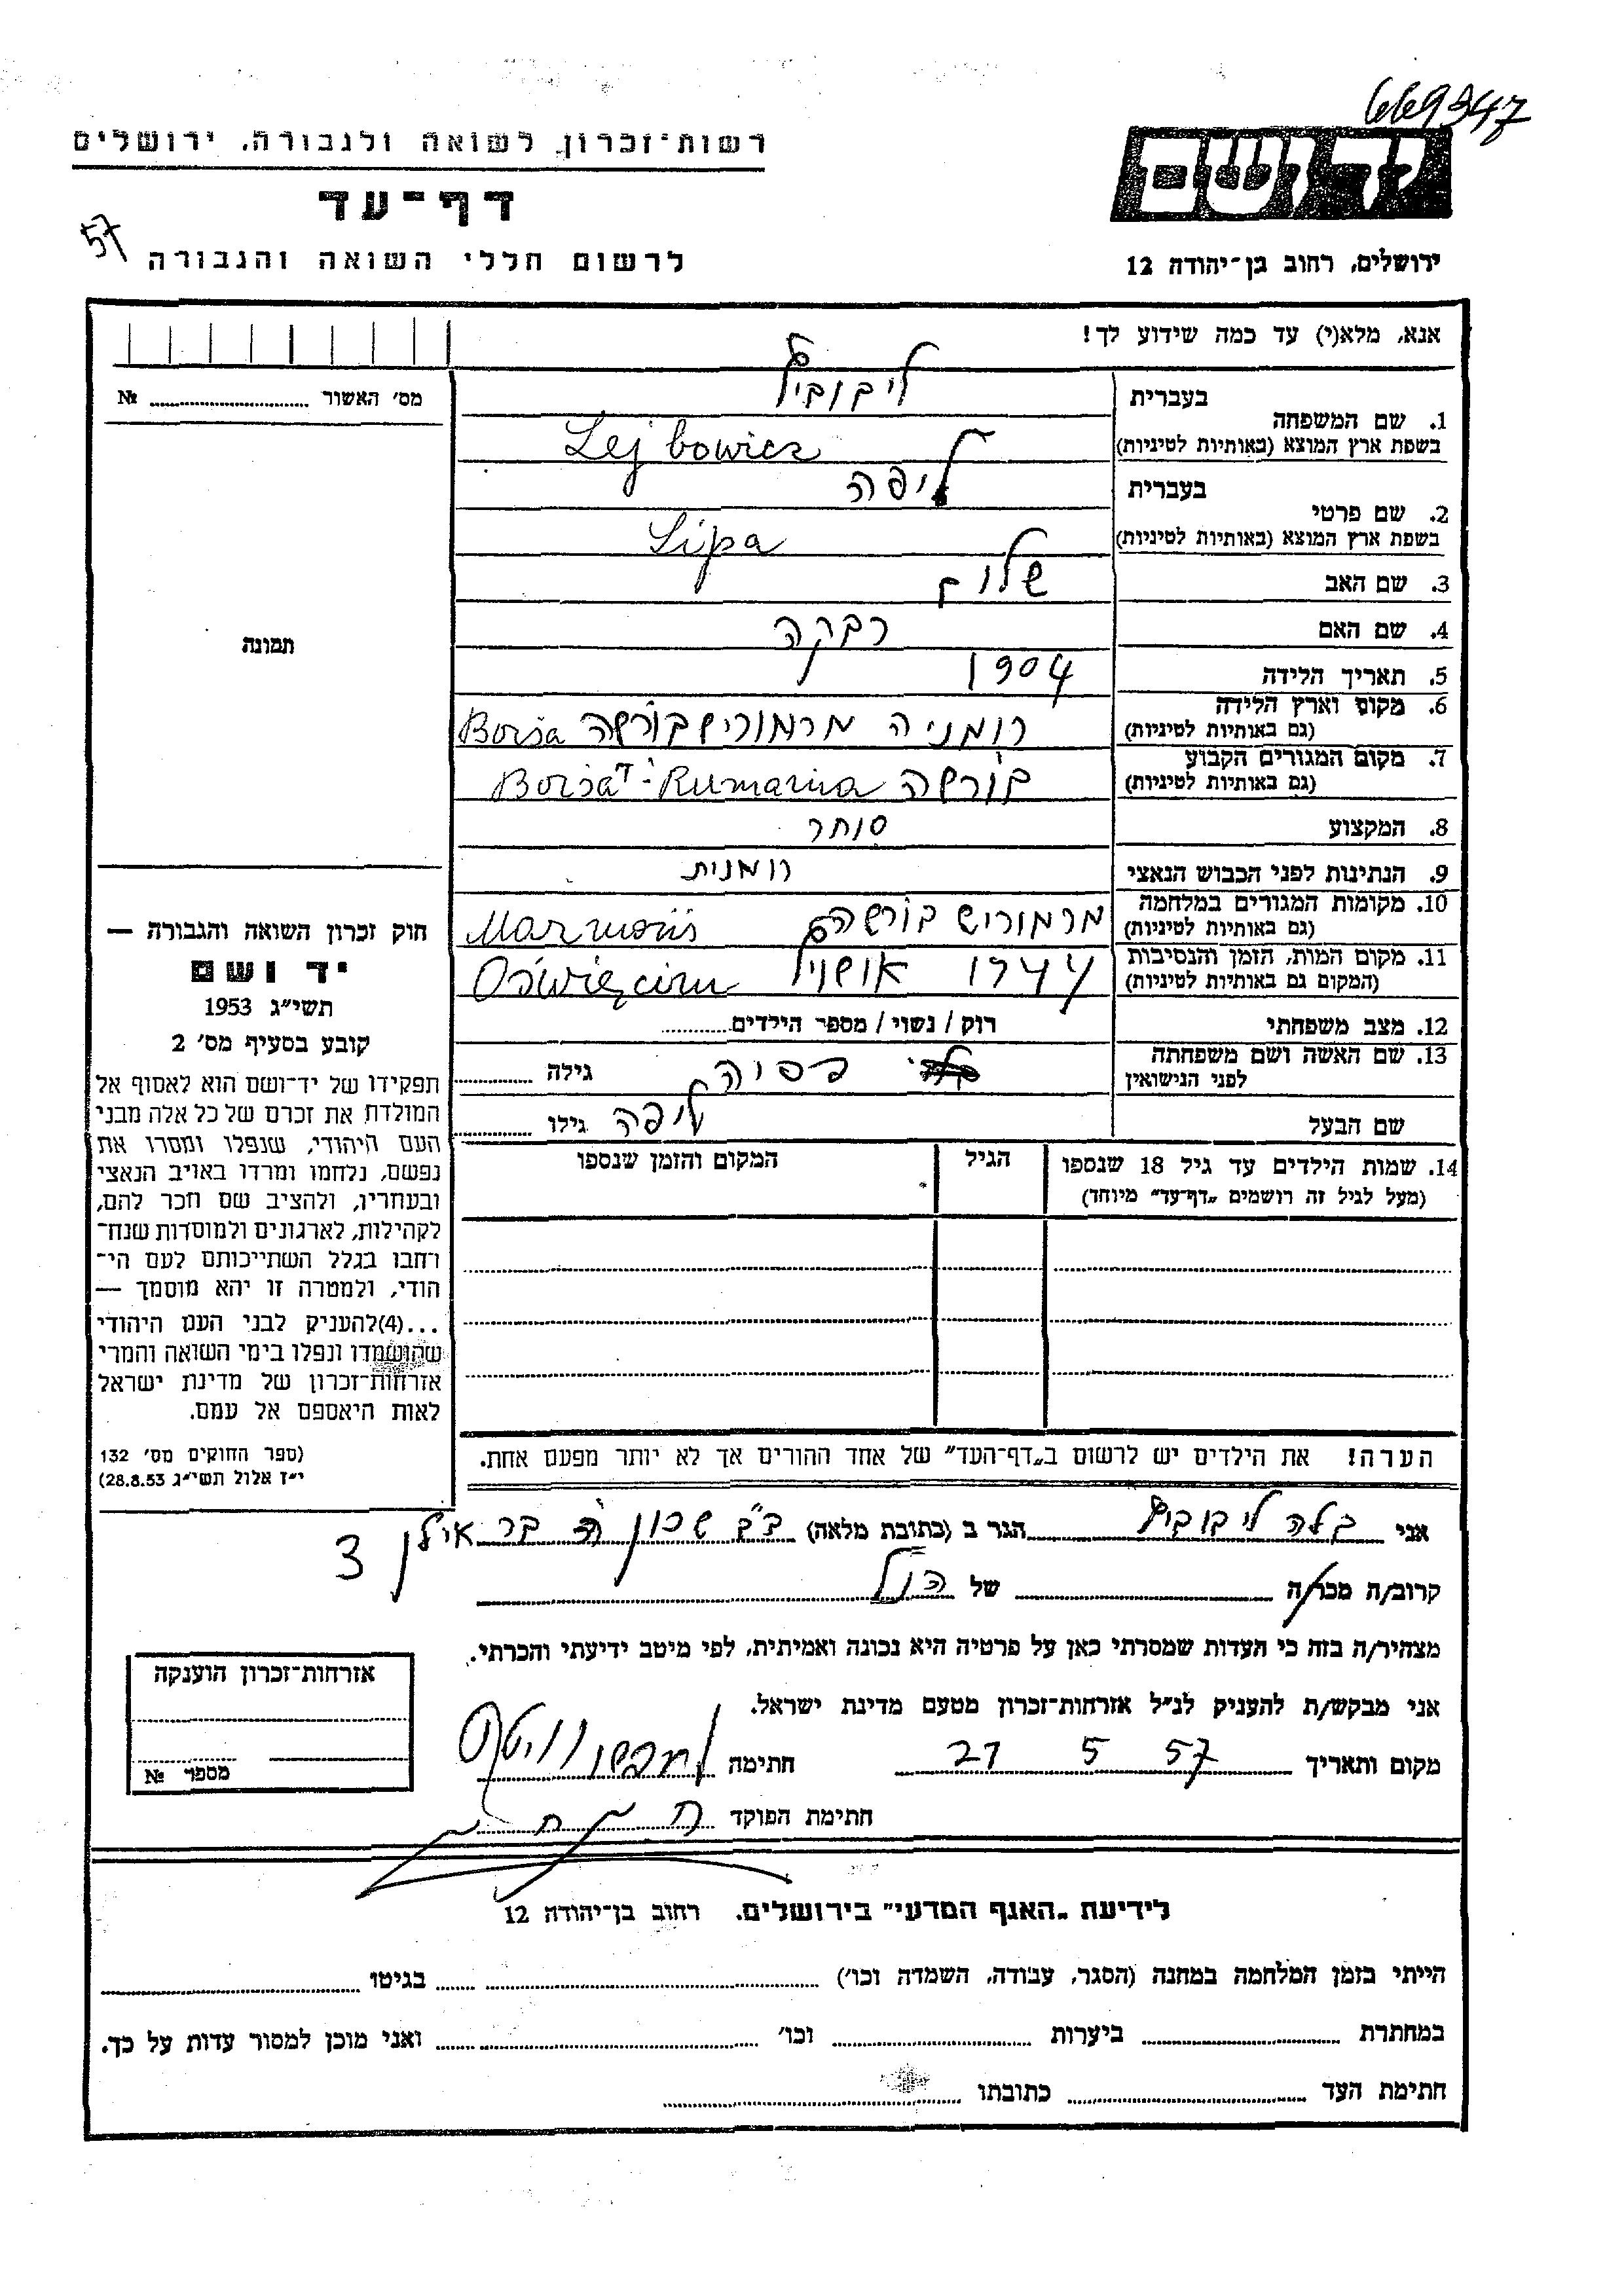 669347
רשות־זכרון לשואה ולגבורה, ירושלים
ידושם
דף־עד
57
לרשום חללי השואה והגבורה
ירושלים, רחוב בן־יהודה 12
אנא, מלא(י) עד כמה שידוע לך!
מס׳ האשור № 
1. שם המשפחה
בעברית ליבוביץ
בשפת ארץ המוצא (באותיות לטיניות) Lejbowicz
2. שם פרטי
בעברית ליפה
בשפת ארץ המוצא (באותיות לטיניות) Lipa
3. שם האב שלום
4. שם האם רבקה
5. תאריך הלידה 1904
6. מקום וארץ הלידה (גם באותיות לטיניות) רומניה מרמוריש בורשה Borśa
7. מקום המגורים הקבוע (גם באותיות לטיניות) בורשה Borśa - Rumania
8. המקצוע סוחר
9. הנתינות לפני הכבוש הנאצי רומנית
10. מקומות המגורים במלחמה (גם באותיות לטיניות) מרמוריש בורשה
11. מקום המות, הזמן והנסיבות (המקום גם באותיות לטיניות) 1944 Oświęcim
12. מצב משפחתי רוק / נשוי / מספר הילדים
13. שם האשה ושם משפחתה לפני הנישואין גילה
שם הבעל ליפה גילו
14. שמות הילדים עד גיל 18 שנספו
(מעל לגיל זה רושמים „דף־עד״ מיוחד)
הגיל
המקום והזמן שנספו
תמונה
חוק זכרון השואה והגבורה —
יד ושם
תשי״ג 1953
קובע בסעיף מס׳ 2
תפקידו של יד־ושם הוא לאסוף אל
המולדת את זכרם של כל אלה מבני
העם היהודי, שנפלו ומסרו את
נפשם, נלחמו ומרדו באויב הנאצי
ובעוזריו, ולהציב שם וזכר להם,
לקהילות, לארגונים ולמוסדות שנח־
רחבו בגלל השתייכותם לעם הי־
הודי, ולמטרה זו יהא מוסמך —
...(4)להעניק לבני העם היהודי
שהושמדו ונפלו בימי השואה והמרי
אזרחות־זכרון של מדינת ישראל
לאות היאספם אל עמם.
(ספר החוקים מס׳ 132
י״ז אלול תשי״ג 28.8.53)
הערה! את הילדים יש לרשום ב„דף־העד״ של אחד ההורים אך לא יותר מפעם אחת.
אני בלה ליבוביץ הגר ב (כתובת מלאה) ב״ב שכון ה בר אילן 3
קרוב/ה מכר/ה של הנ״ל
מצהיר/ה בזה כי העדות שמסרתי כאן על פרטיה היא נכונה ואמיתית, לפי מיטב ידיעתי והכרתי.
אני מבקש/ת להעניק לנ״ל אזרחות־זכרון מטעם מדינת ישראל.
מקום ותאריך 27 5 57 חתימה
חתימת הפוקד
אזרחות־זכרון הוענקה
מספר №
לידיעת „האגף המדעי״ בירושלים. רחוב בן־יהודה 12
הייתי בזמן המלחמה במחנה (הסגר, עבודה, השמדה וכו׳) בגיטו
במחתרת ביערות וכו׳ ואני מוכן למסור עדות על כך.
חתימת העד כתובתו